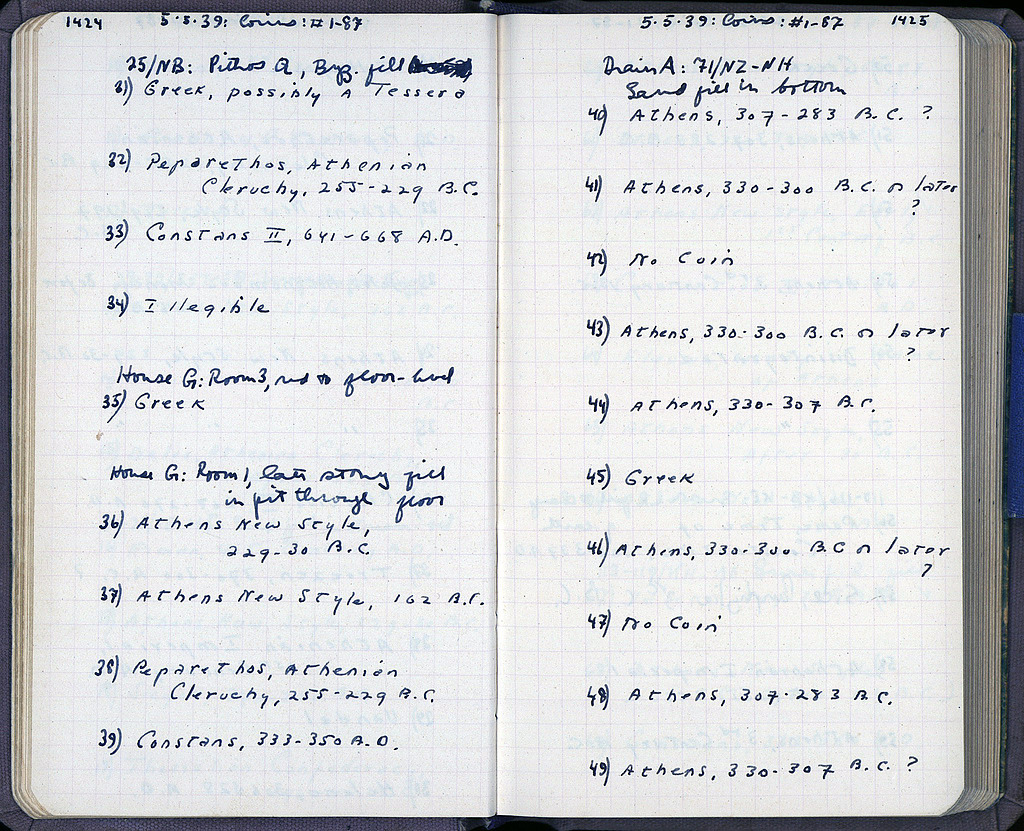 1424 5·5·39: Coins: #1-87
25/NB: Pithos Q, Byz. fill
31) Greek, possibly a Tessera
32) Peparethos, Athenian
Cleruchy, 255-229 B.C.
33) Constans II, 641-668 A.D.
34) Illegible
House G: Room 3, red to floor-level
35) Greek
House G: Room 1, late strong fill
in pit through floor
36) Athens New Style,
229-30 B.C.
37) Athens New Style, 162 B.C.
38) Peparethos, Athenian
Cleruchy, 255-229 B.C.
39) Constans, 333-350 A.D.
5·5·39: Coins: #1-87 1425
Drain A: 71/NZ-NH
Sand fill in bottom
40) Athens, 307-283 B.C. ?
41) Athens, 330-300 B.C. or later
?
42) No Coin
43) Athens, 330-300 B.C. or later
?
44) Athens, 330-307 B.C.
45) Greek
46) Athens, 330-300 B.C or later
?
47) No Coin
48) Athens, 307-283 B.C.
49) Athens, 330-307 B.C. ?